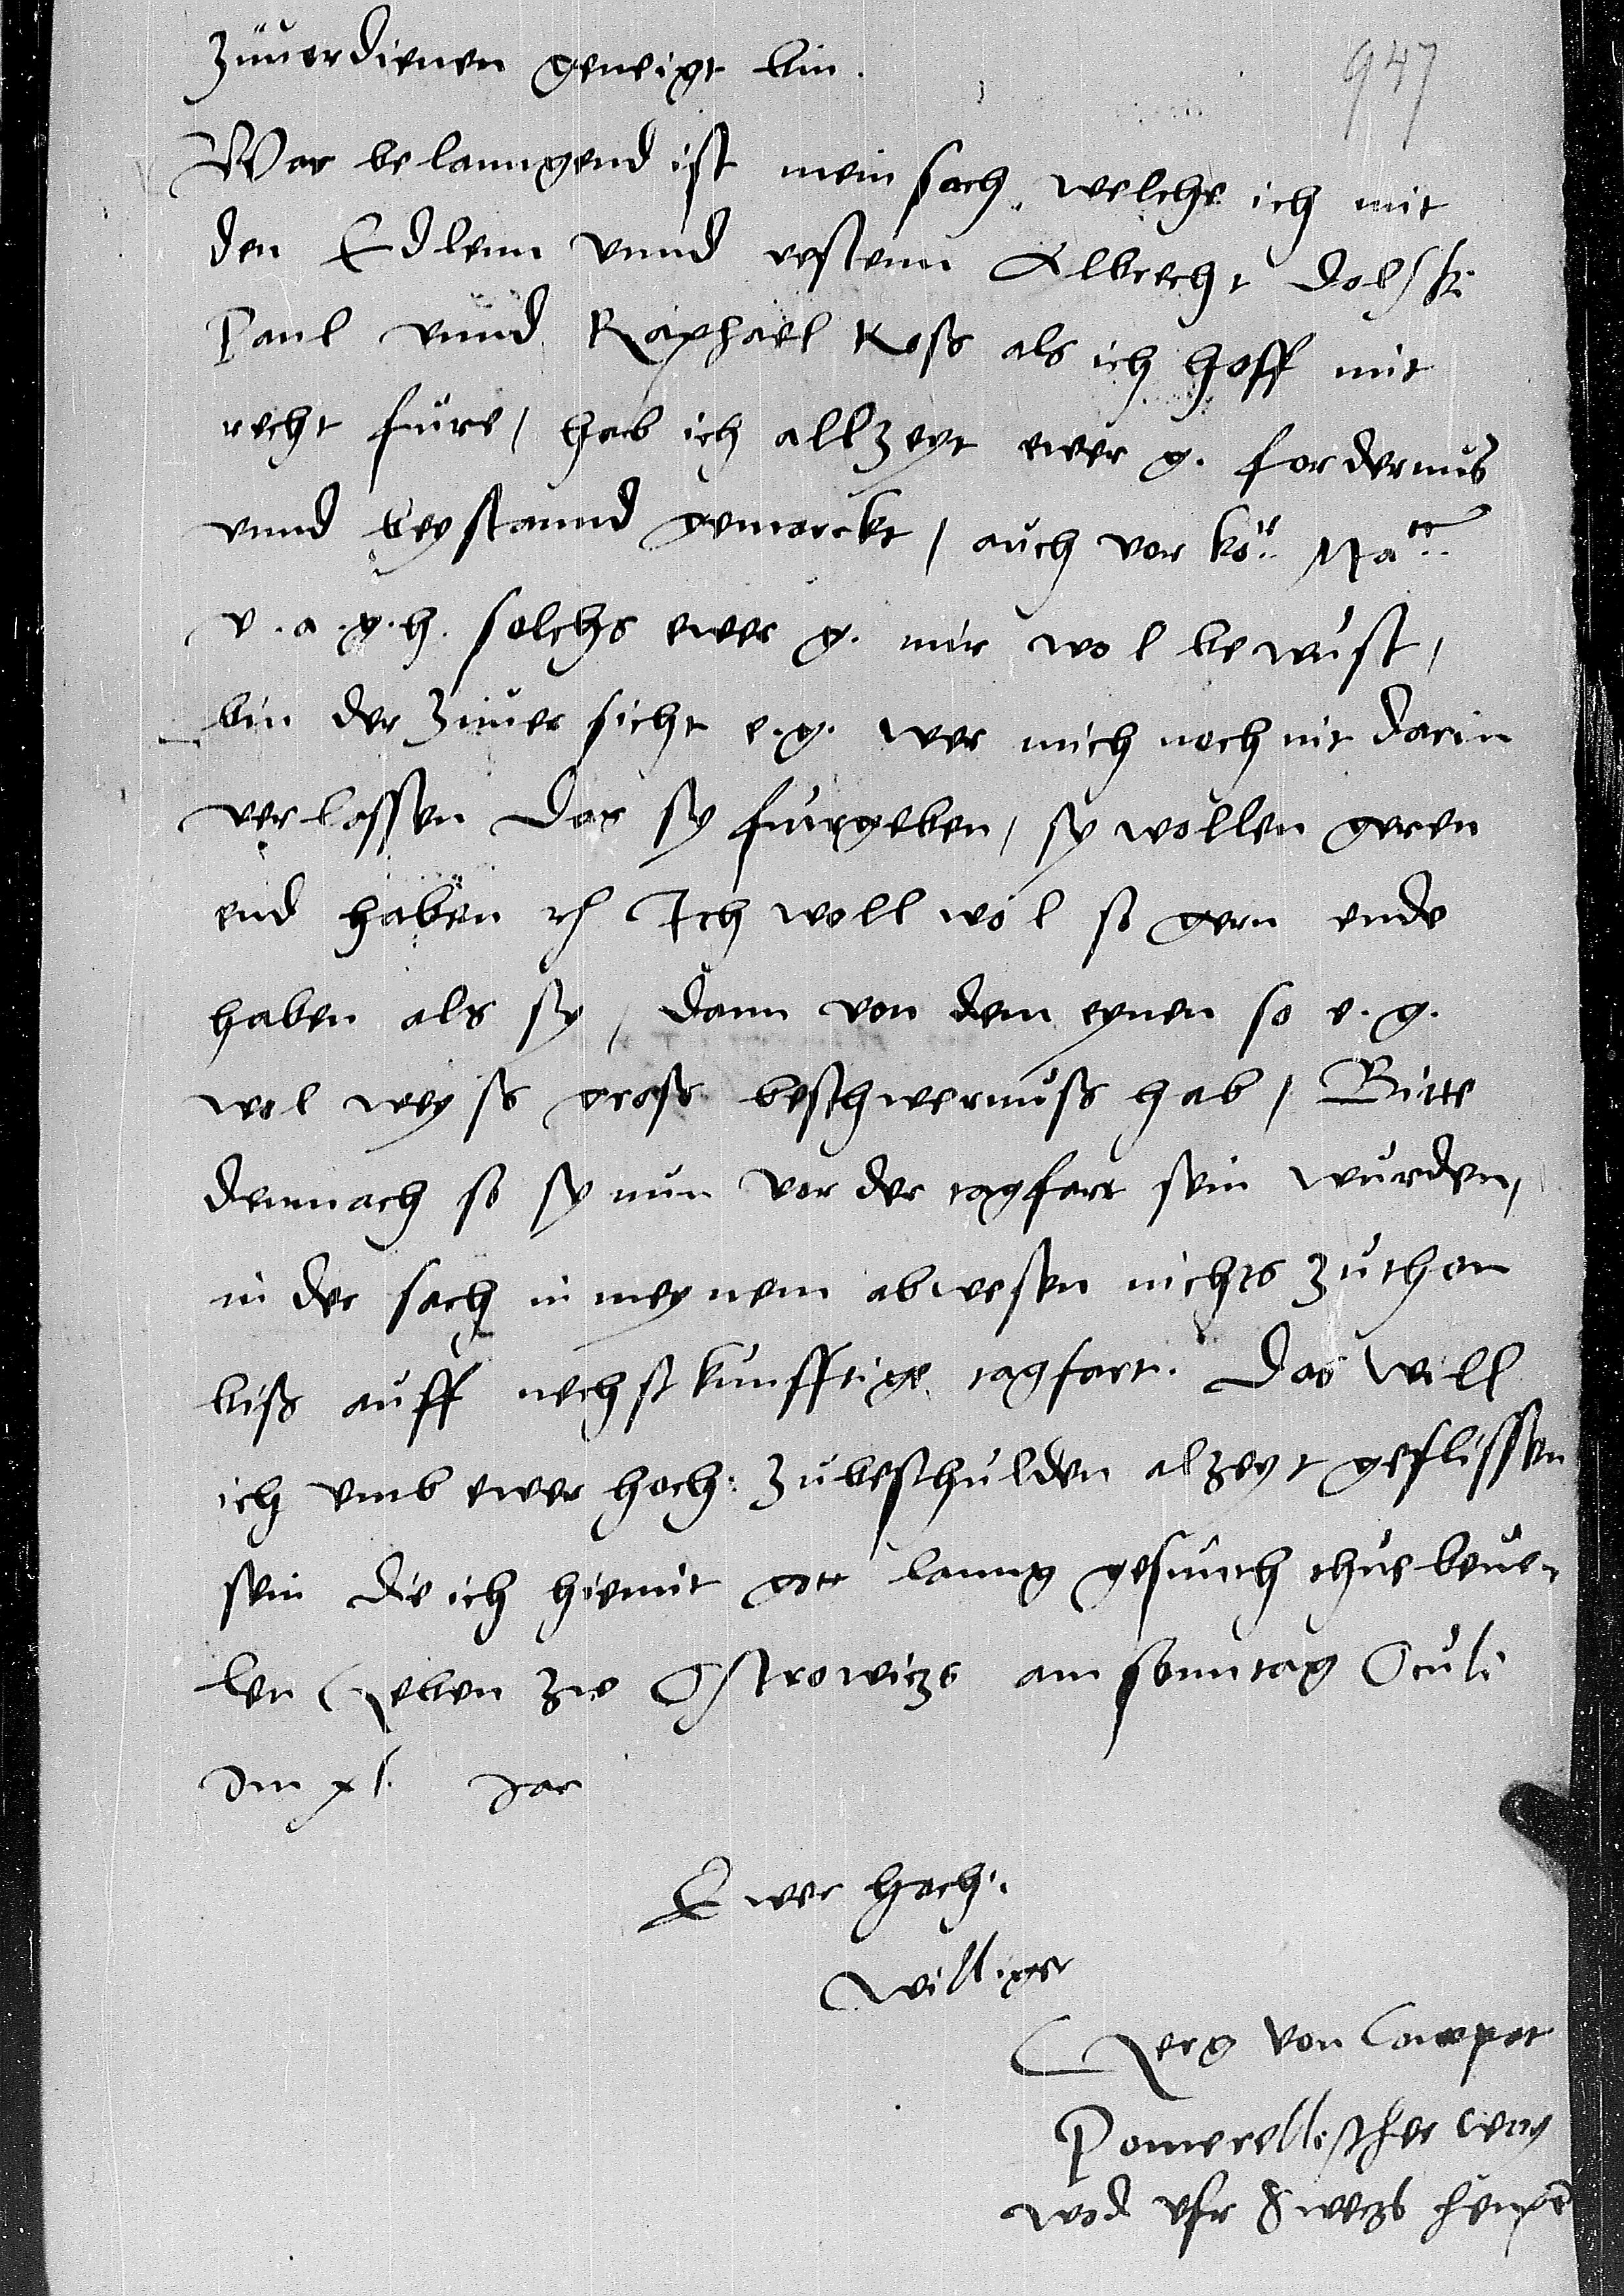 zuuerdienen geneigt bin.
947
Was belanngend ist mein sach welche ich mit
den Edlenn vnnd vestenn Albrecht Dolsk.
Paul vnnd Raphael Koss als ich hoff mit
recht fure / hab ich allzeyt ewer g. fordernus
vnnd beystannd gemarckt / auch vor kö: Ma:tt
v. a. g. h. solchs ewer g. mir wol bewust /
bin der zuuersicht e. g. wer mich noch nit darin
verlassen Das sy furgeben / sy wollen geren
end haben rc Ich woll wol so gern ende
haben als sy / dann von dem eynen so e. g.
wol weyss gross beschwernuss hab / Bitte
demnach so sy nun vor der tagfart sein wurden /
in der sach in meynem abwesen nichts zuthon
biss auff nechstkunfftige tagfart. Das will
ich vmb ewer hoch: zubeschulden alzeyt geflissen
sein die ich hiemit gott lanng gesunth thue beue-
len Geben zw Ostrowitzs am sonntag Oculi
Im xl. Jar
Ewer hoch:
Williger
Gerg von
Pomerellischer way
wod vfr